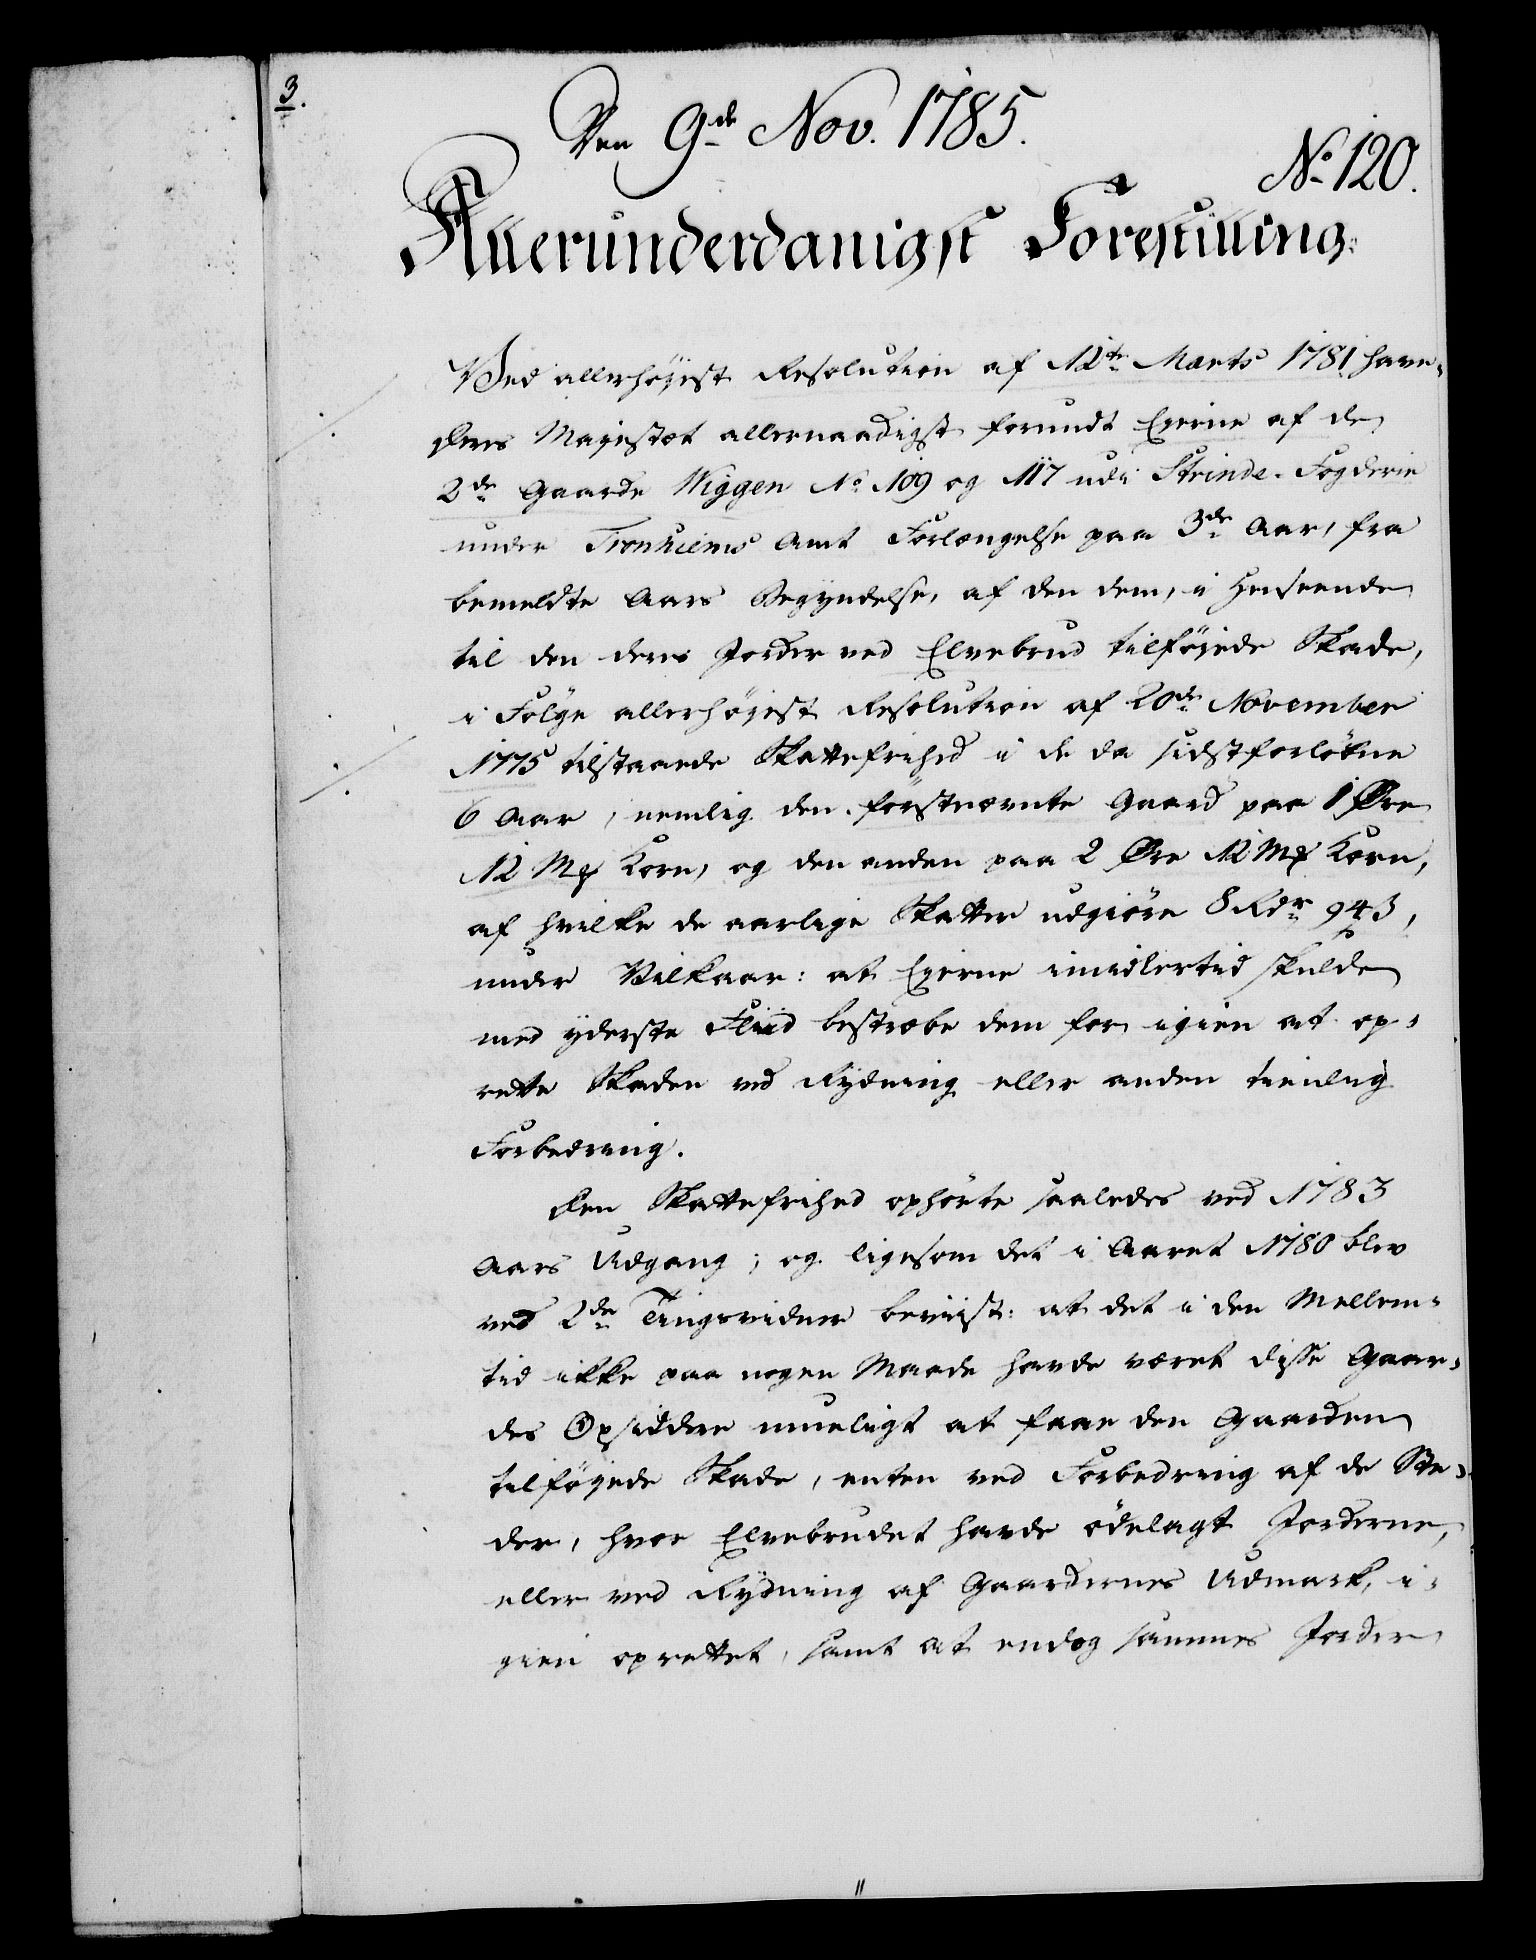 3.
Den 9de Nov. 1785.
No 120.
Allerunderdanigst Forestilling:
Ved allerhøjest Resolution af 12te Marts 1781 have
Deres Majestæt allernaadigst forundt Ejerne af de
2de Gaarde Wiggen No 109 og 117 udi Strinde-Fogderie
under Tronhiems Amt Forlængelse paa 3de Aar, fra
bemeldte Aars Begyndelse, af den dem, i Henseende
til den deres Jorder ved Elvebrud tilføjede Skade,
i Følge allerhøjest Resolution af 20de November
1775 tilstaaede Skattefrihed i de da sidstforløbne
6 Aar, nemlig den førstnævnte Gaard paa 1 Øre
12 Mk Korn, og den anden paa 2 Øre 12 Mk Korn,
af hvilke de aarlige Skatter udgiøre 8 Rdr 94 ß,
under Vilkaar: at Ejerne imidlertid skulde
med yderste Fliid bestræbe dem for igien at op-
rette Skaden ved Rydning eller anden tienlig
Forbedring.
Den Skattefrihed ophørte saaledes ved 1783
Aars Udgang; og ligesom det i Aaret 1780 blev
ved 2de Tingsvidner beviist: at det i den Mellem-
tid ikke paa nogen Maade havde været disse Gaar-
des Opsiddere mueligt at faae den Gaarden
tilføjede Skade, enten ved Forbedring af de Ste-
der, hvor Elvebrudet havde ødelagt Jorderne,
eller ved Rydning af Gaardernes Udmark, i-
gien oprettet, samt at endog sammes Jorder